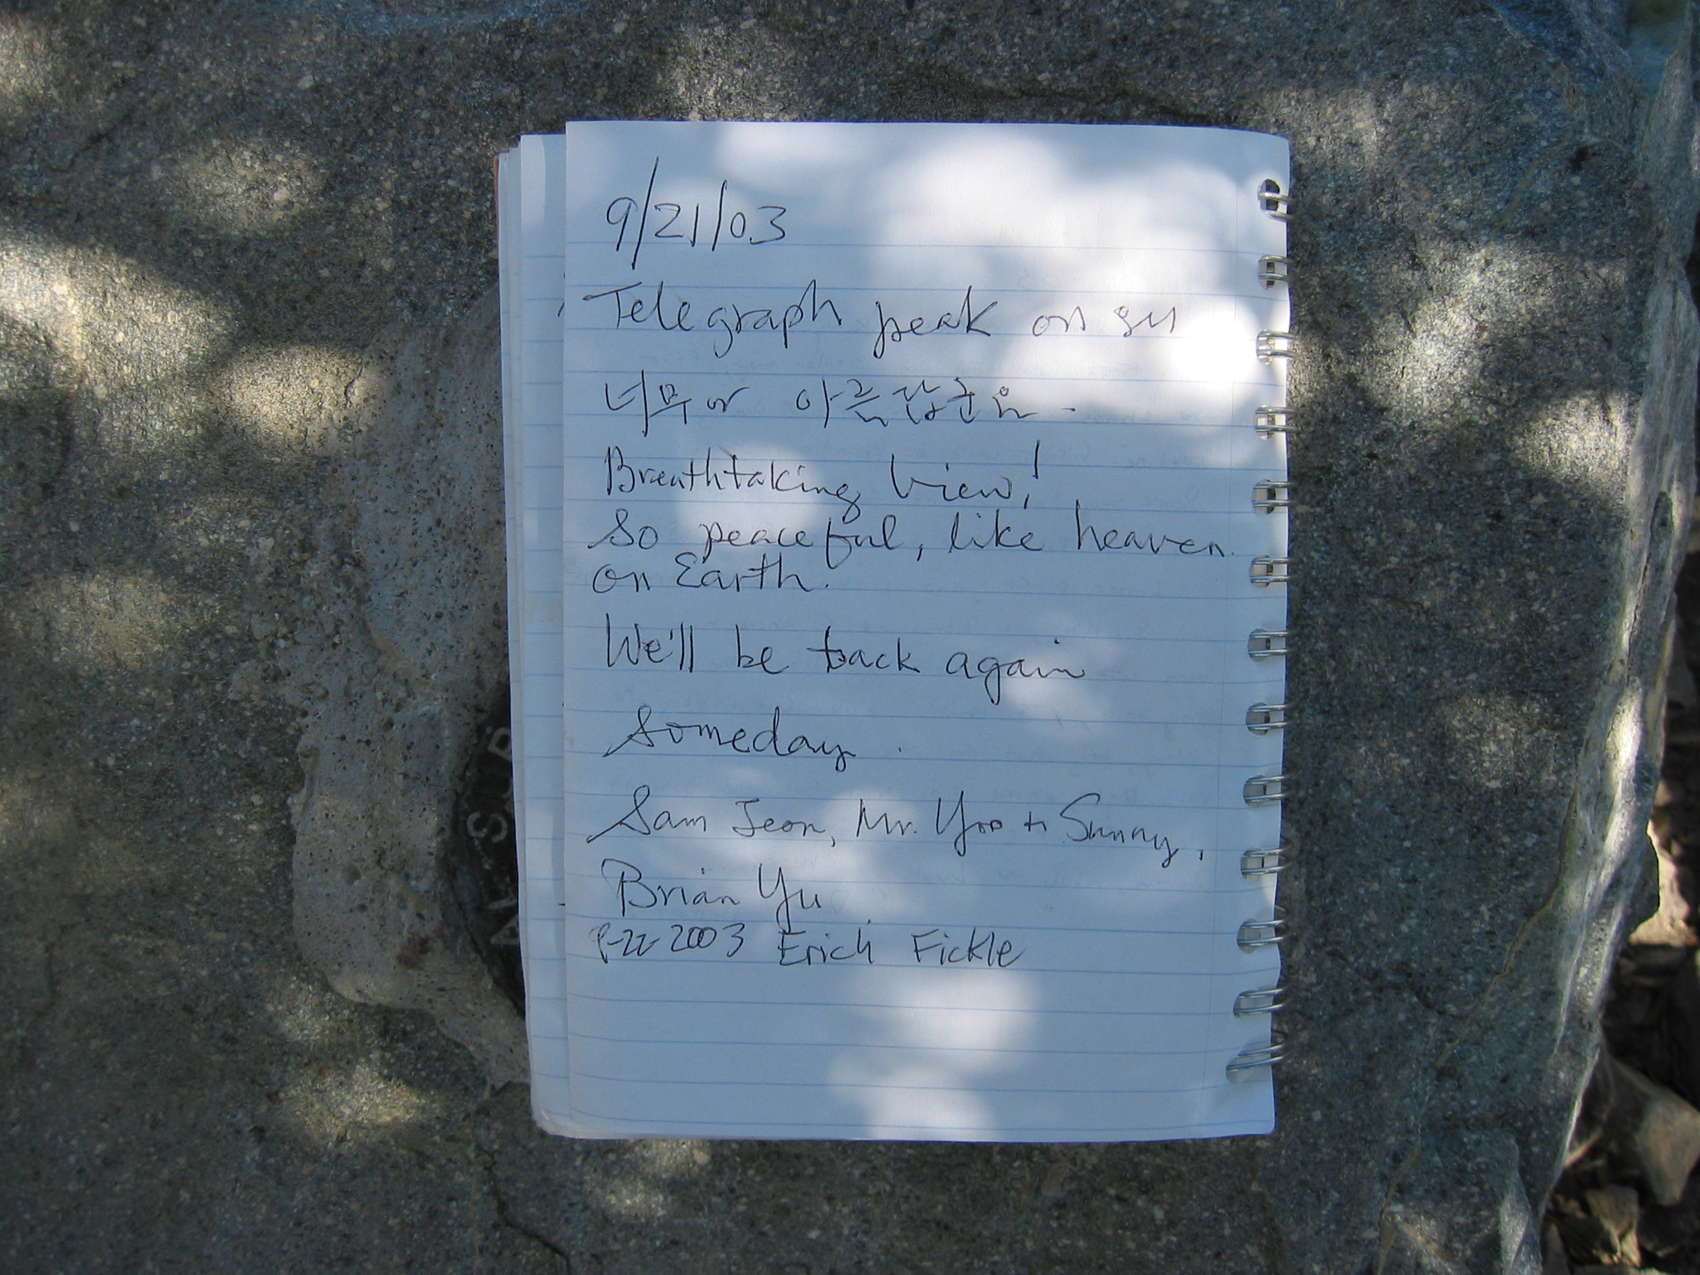 9/21/03
Telegraph peak on
너무나 아름답군요 -
Breathtaking View!
So peaceful, like heaven
on Earth.
We'll be back again
Someday.
Sam Jeon, Mr. Yoo + Sunny,
Brian Yu
9-22-2003 Erich Fickle